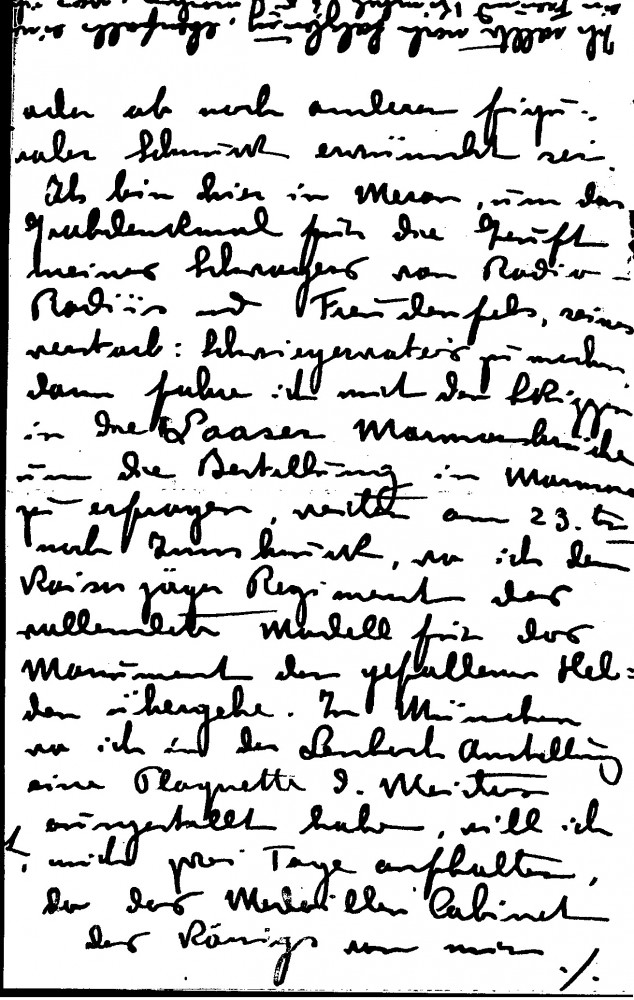 Ich sollte noch Salzburg, ebenfalls ein
ein Freund
oder ob noch anderer figu-
raler Schmuck erwünscht sei.
Ich bin hier in Meran, um das
Grabdenkmal für die Gruft
meines Schwagers von Radio-
Radiis und Freudenfels, seines
verstorb: Schwiegervaters zu machen,
dann fahre ich mit den Skizzen
in die Laaser Marmorbrüche
um die Bestellung in Marmor
zu erfragen, weiter am 23. ts
nach Innsbruck, wo ich dem
Kaiserjäger Regiment das
vollendete Modell für das
Monument der gefallenen Hel=
den übergebe. In München
wo ich in der Lenbach Ausstellung
eine Plaquette d. Meisters
ausgestellt habe, will ich
mich zwei Tage aufhalten,
da das Medaillen Cabinet
des Königs von mir
./.